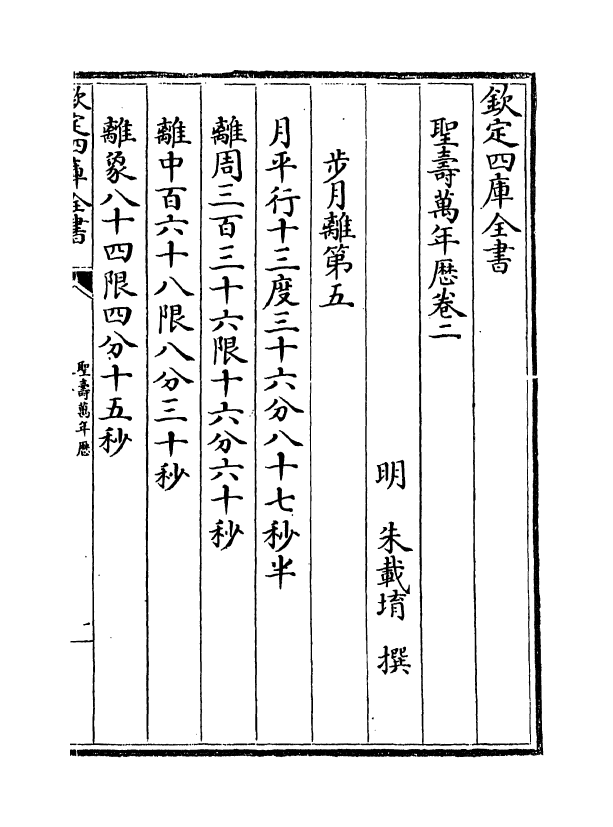 欽定四庫全書
聖壽萬年歴卷二
明 朱載堉 撰
步月離第五
月平行十三度三十六分八十七秒半
離周三百三十六限十六分六十秒
離中百六十八限八分三十秒
離象八十四限四分十五秒
欽定四庫全書
聖壽萬年歴
一